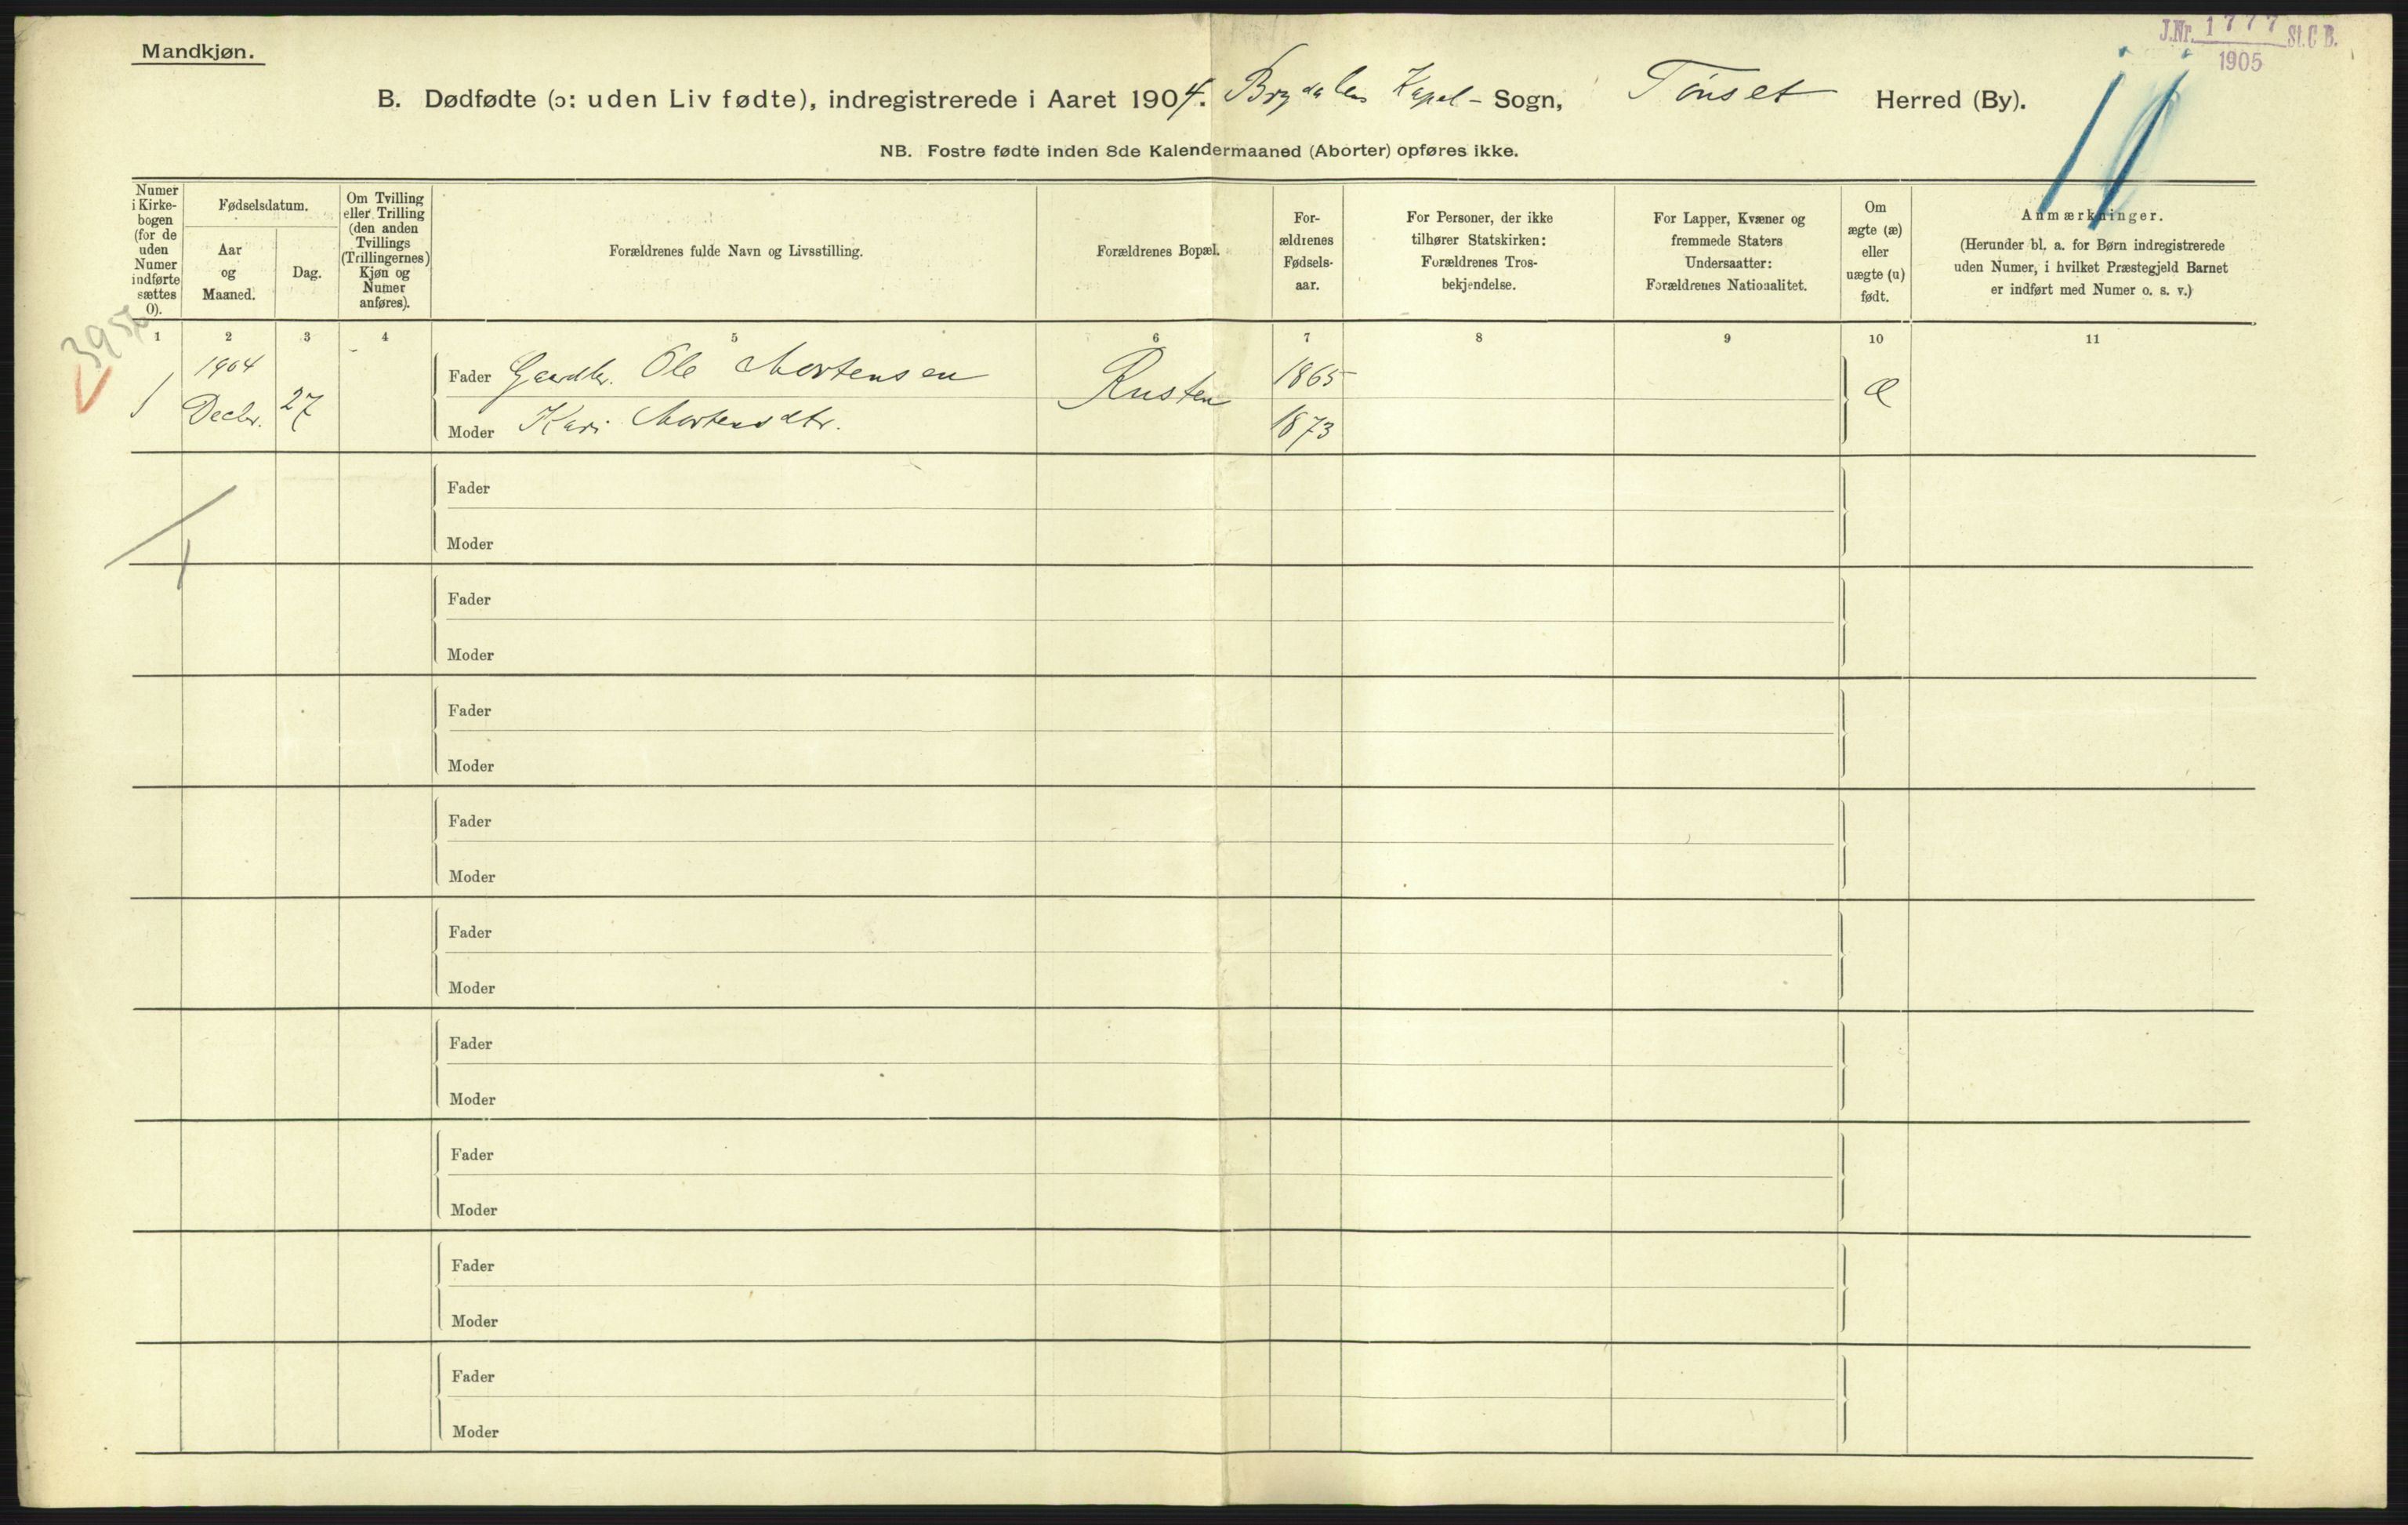 Mandkjøn.
J.Nr. 1777 St.C.B.
1905
B. Dødfødte (ɔ: uden Liv fødte), indregistrerede i Aaret 1904. Brydalens Kapel- Sogn, Tønset Herred (By).
NB. Fostre fødte inden 8de Kalendermaaned (Aborter) opføres ikke.
Numer
i Kirke-
bogen
(for de
uden
Numer
indførte
sættes
0).
Fødselsdatum.
Aar
og
Maaned.
Dag.
Om Tvilling
eller Trilling
(den anden
Tvillings
(Trillingernes)
Kjøn og
Numer
anføres).
Forældrenes fulde Navn og Livsstilling.
Forældrenes Bopæl.
For-
ældrenes
Fødsels-
aar.
For Personer, der ikke
tilhører Statskirken:
Forældrenes Tros-
bekjendelse.
For Lapper, Kvæner og
fremmede Staters
Undersaatter:
Forældrenes Nationalitet.
Om
ægte (æ)
eller
uægte (u)
født.
Anmærkninger.
(Herunder bl. a. for Børn indregistrerede
uden Numer, i hvilket Præstegjeld Barnet
er indført med Numer o. s. v.)
1 2 3 4 5 6 7 8 9 10 11
1 1904 Decbr. 27
Fader Gaardbr. Ole Mortensen Rusten 1865 æ
Moder Kari Mortensdtr. 1873
Fader
Moder
Fader
Moder
Fader
Moder
Fader
Moder
Fader
Moder
Fader
Moder
Fader
Moder
Fader
Moder
Fader
Moder